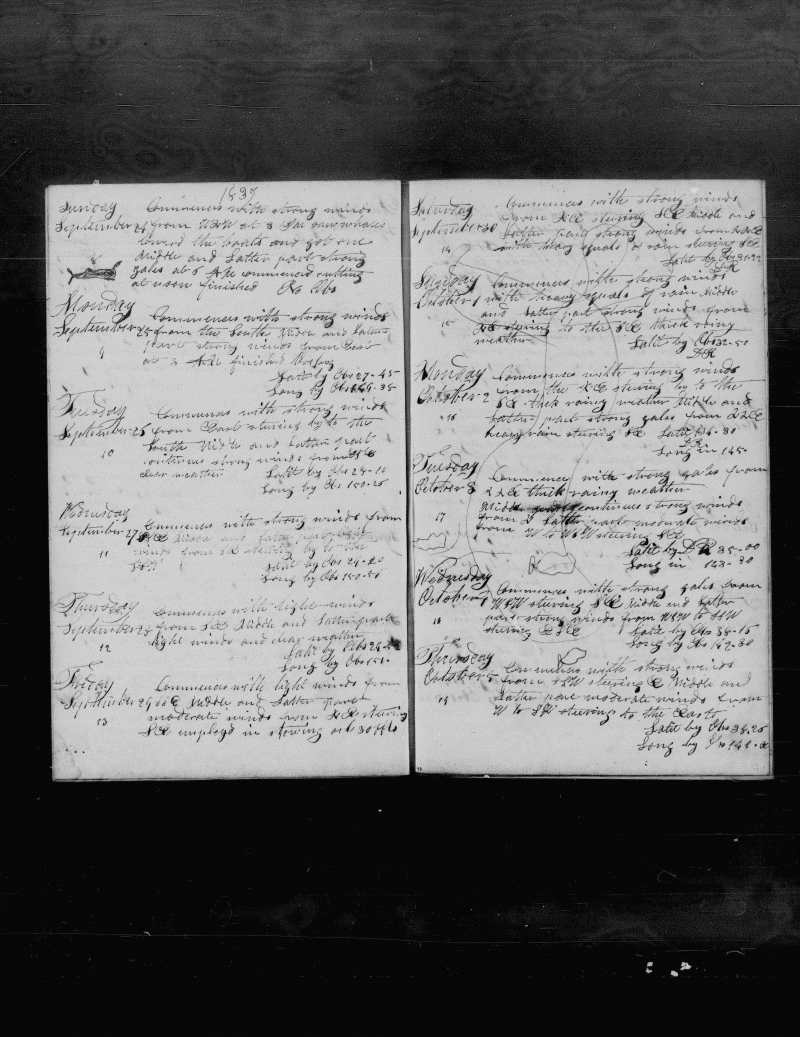 1837
Sunday Commences with strong winds
September 24 from at 3 saw whales
lowerd the boats and got one
Middle and Latter part strong
gales at 5 AM commenced cutting
at noon finished No Obs
Monday Commences with strong winds
September 25 from the South Middle and Latter
9 part strong winds from East
at 3 finished
Latt by Obs 27-45
Long by Obs
Tuesday Commences with strong winds
September 26 from East stering by to the
10 South Middle and Latter part
continues strong winds from
clear weather Latt by Obs 28-10
Long by Obs 150-25
Wednesday
September 27 Commences with strong winds from
Middle and Latter part
11 winds from SE stering by to the
SW Latt by Obs
Long by Obs 150-50
Thursday Commences with light winds
September 28 from Middle and Latter part
12 light winds and clear weather
Latt by Obs
Long by Obs 151-
Friday Commences with light winds from
September 29 Middle and Latter part
moderate winds from stering
13 SE employd in stowing oil
Saturday Commences with strong winds
September 30 from stering SE Middle and
Latter part strong winds from
14 with heavy squals of rain stering SE
Latt by Obs
DR
Sunday Commences with strong winds
October 1 with heavy squals of rain Middle
and Latter part strong winds from
15 stering to the SE thick rainy
weather Latt by Obs 32-50
DR
Monday Commences with strong winds
October 2 from the NE stering by to the
SE thick rainy weather Middle and
16 Latter part strong gales from
heavy rain stering SE Latt
Long in 145
Tuesday
October 3 Commences with strong gales from
thick rainy weather
Middle continues strong winds
17 from Latter part moderate winds
from W to WSW stering SE
Latt by DR 35-00
Long in 143-30
Wednesday
October 4 Commences with strong gales from
WSW stering SE Middle and Latter
part strong winds from WSW to SSW
18 stering ESE Latt by Obs 38-15
Long by Obs 142-30
Thursday
October 5 Commences with strong winds
from SSW stering E Middle and
19 Latter part moderate winds from
W to SW stering to the East
Latt by Obs 38-25
Long by Obs